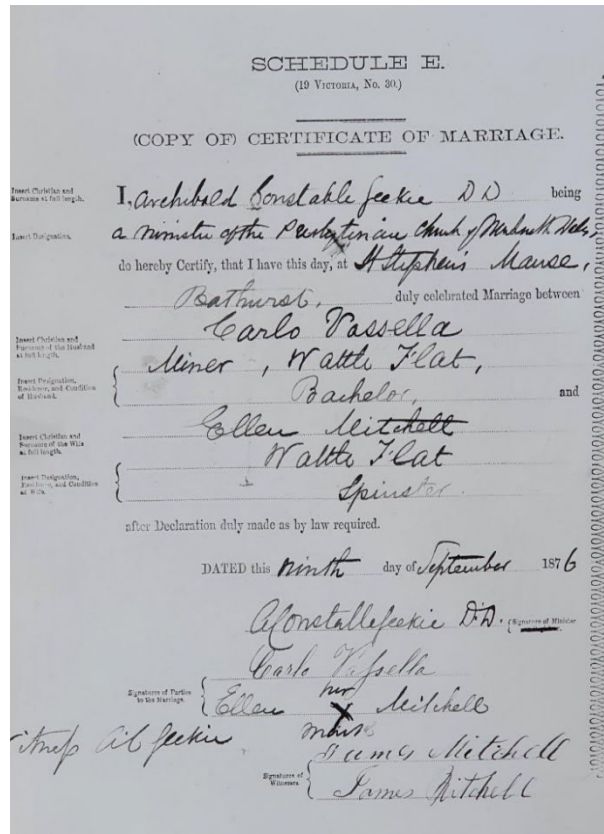 SCHEDULE E.
(19 VICTORIA, No. 30.)
(COPY OF) CERTIFICATE OF MARRIAGE.
Insert Christian and
Surname at full length.
I, Archibald Constable Geekie DD being
Insert Designation.
a minister of the Presbyterian Church of New South Wales,
do hereby Certify, that I have this day, at St Stephen's Manse,
Bathurst, duly celebrated Marriage between
Insert Christian and
Surname of the Husband
at full length.
Carlo Vassella
Insert Designation,
Residence, and Condition
of Husband.
Miner, Wattle Flat,
Bachelor, and
Insert Christian and
Surname of the Wife
at full length.
Ellen Mitchell
Wattle Flat
Insert Designation,
Residence, and Condition
of Wife.
Spinster.
after Declaration duly made as by law required.
DATED this ninth day of September 1876
A Constable Geekie D.D. (Signature of Minister
Carlo Vassella
Signatures of Parties
to the Marriage.
Ellen her X Mitchell
mark
A C Geekie
James Mitchell
Signatures of
Witnesses.
James Mitchell